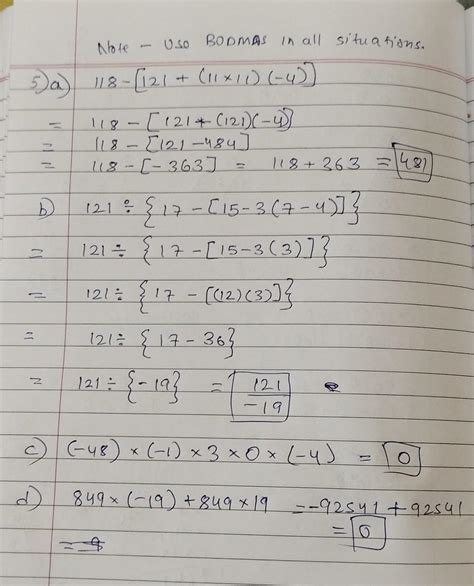 Note - Use BODMAS in all situations.
5) a) 118 - [121 + (11 × 11) (-4)]
= 118 - [121 + (121)(-4)]
= 118 - [121 - 484]
= 118 - [-363] = 118 + 363 = 481
b) 121 ÷ {17 - [15-3(7-4)]}
= 121 ÷ {17 - [15-3(3)]}
= 121 ÷ {17 - [(12)(3)]}
= 121 ÷ {17 - 36}
= 121 ÷ {-19} = 121/-19
c) (-48) × (-1) × 3 × 0 × (-4) = 0
d) 849 × (-19) + 849 × 19 = -92541 + 92541
= 0